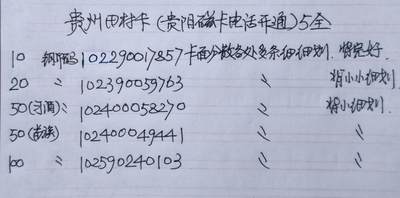 贵州田村卡(贵阳磁卡电话开通)5全
10 钢印码102290017857卡面分散各处多条细细划.特完好
20 〃 102390059763 〃 有小小细划
50(习酒)〃 102400058270 〃 有小细划
50(苗族) 10240049441 〃 〃
100 〃 102590240103 〃 〃